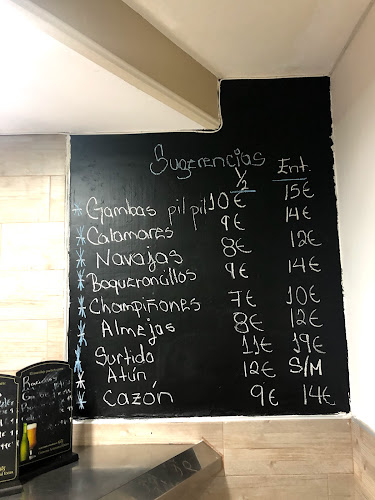 Sugerencias
1/2 Ent.
Gambas pil pil 10€ 15€
Calamares 9€ 14€
Navajas 8€ 12€
Boqueroncillos 9€ 14€
Champiñones 7€ 10€
Almejas 8€ 12€
Surtido 11€ 19€
Atún 12€ S/M
Cazón 9€ 14€